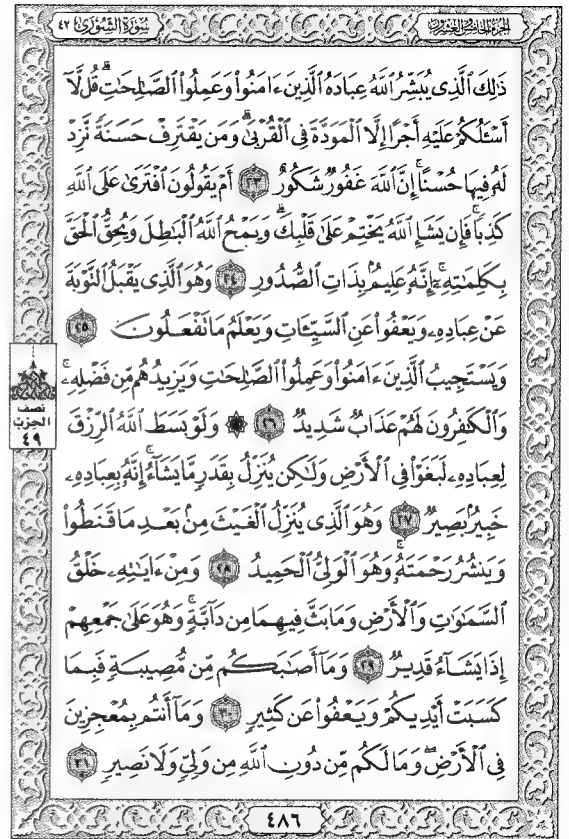 الجزء الخامس والعشرون
سورة الشورى ٤٢
ذَٰلِكَ ٱلَّذِى يُبَشِّرُ ٱللَّهُ عِبَادَهُ ٱلَّذِينَ ءَامَنُوا۟ وَعَمِلُوا۟ ٱلصَّـٰلِحَـٰتِ ۗ قُل لَّآ
أَسْـَٔلُكُمْ عَلَيْهِ أَجْرًا إِلَّا ٱلْمَوَدَّةَ فِى ٱلْقُرْبَىٰ ۗ وَمَن يَقْتَرِفْ حَسَنَةً نَّزِدْ
لَهُۥ فِيهَا حُسْنًا ۚ إِنَّ ٱللَّهَ غَفُورٌ شَكُورٌ ٢٣ أَمْ يَقُولُونَ ٱفْتَرَىٰ عَلَى ٱللَّهِ
كَذِبًا ۖ فَإِن يَشَإِ ٱللَّهُ يَخْتِمْ عَلَىٰ قَلْبِكَ ۗ وَيَمْحُ ٱللَّهُ ٱلْبَـٰطِلَ وَيُحِقُّ ٱلْحَقَّ
بِكَلِمَـٰتِهِۦٓ ۚ إِنَّهُۥ عَلِيمٌۢ بِذَاتِ ٱلصُّدُورِ ٢٤ وَهُوَ ٱلَّذِى يَقْبَلُ ٱلتَّوْبَةَ
عَنْ عِبَادِهِۦ وَيَعْفُوا۟ عَنِ ٱلسَّيِّـَٔاتِ وَيَعْلَمُ مَا تَفْعَلُونَ ٢٥
وَيَسْتَجِيبُ ٱلَّذِينَ ءَامَنُوا۟ وَعَمِلُوا۟ ٱلصَّـٰلِحَـٰتِ وَيَزِيدُهُم مِّن فَضْلِهِۦ ۚ
وَٱلْكَـٰفِرُونَ لَهُمْ عَذَابٌ شَدِيدٌ ٢٦ ۞ وَلَوْ بَسَطَ ٱللَّهُ ٱلرِّزْقَ
لِعِبَادِهِۦ لَبَغَوْا۟ فِى ٱلْأَرْضِ وَلَـٰكِن يُنَزِّلُ بِقَدَرٍ مَّا يَشَآءُ ۚ إِنَّهُۥ بِعِبَادِهِۦ
خَبِيرٌۢ بَصِيرٌ ٢٧ وَهُوَ ٱلَّذِى يُنَزِّلُ ٱلْغَيْثَ مِنۢ بَعْدِ مَا قَنَطُوا۟
وَيَنشُرُ رَحْمَتَهُۥ ۚ وَهُوَ ٱلْوَلِىُّ ٱلْحَمِيدُ ٢٨ وَمِنْ ءَايَـٰتِهِۦ خَلْقُ
ٱلسَّمَـٰوَٰتِ وَٱلْأَرْضِ وَمَا بَثَّ فِيهِمَا مِن دَآبَّةٍ ۚ وَهُوَ عَلَىٰ جَمْعِهِمْ
إِذَا يَشَآءُ قَدِيرٌ ٢٩ وَمَآ أَصَـٰبَكُم مِّن مُّصِيبَةٍ فَبِمَا
كَسَبَتْ أَيْدِيكُمْ وَيَعْفُوا۟ عَن كَثِيرٍ ٣٠ وَمَآ أَنتُم بِمُعْجِزِينَ
فِى ٱلْأَرْضِ ۖ وَمَا لَكُم مِّن دُونِ ٱللَّهِ مِن وَلِىٍّ وَلَا نَصِيرٍ ٣١
نصف
الحزب
٤٩
٤٨٦